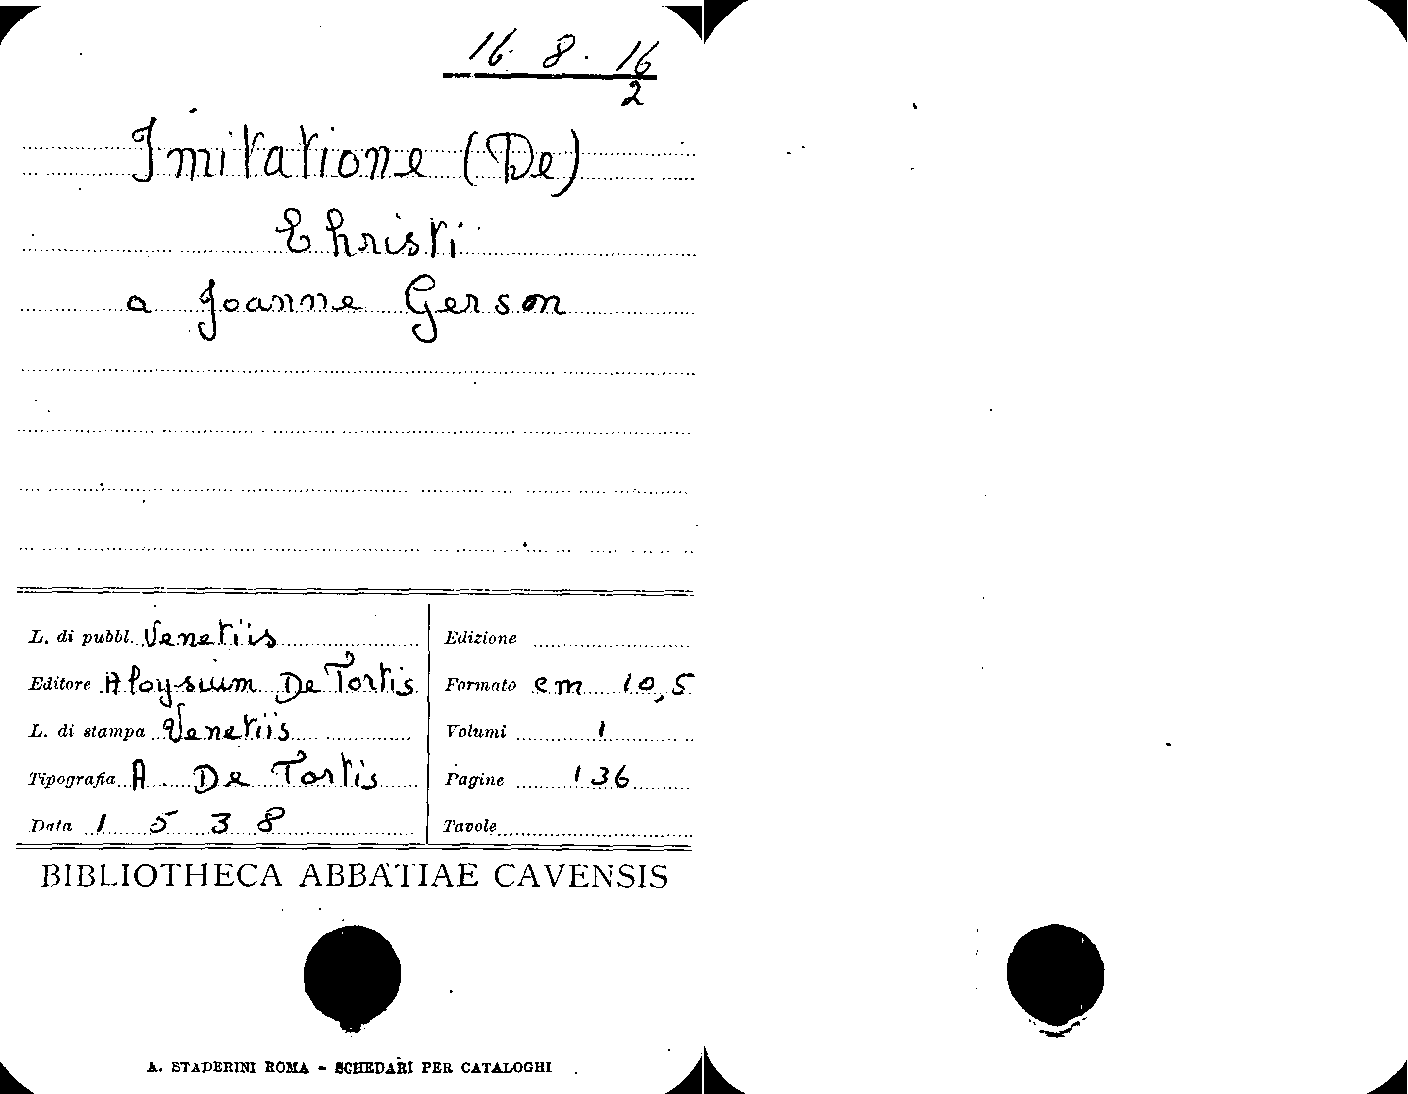 16. 8. 16
2
Imitatione (De)
Christi
a Joanne Gerson
L. di pubbl. Venetiis
Editore Aloysium De Tortis
L. di stampa Venetiis
Tipografia A. De Tortis
Data 1538
Edizione
Formato cm 10,5
Volumi 1
Pagine 136
Tavole
BIBLIOTHECA ABBATIAE CAVENSIS
A. STADERINI ROMA - SCHEDARI PER CATALOGHI